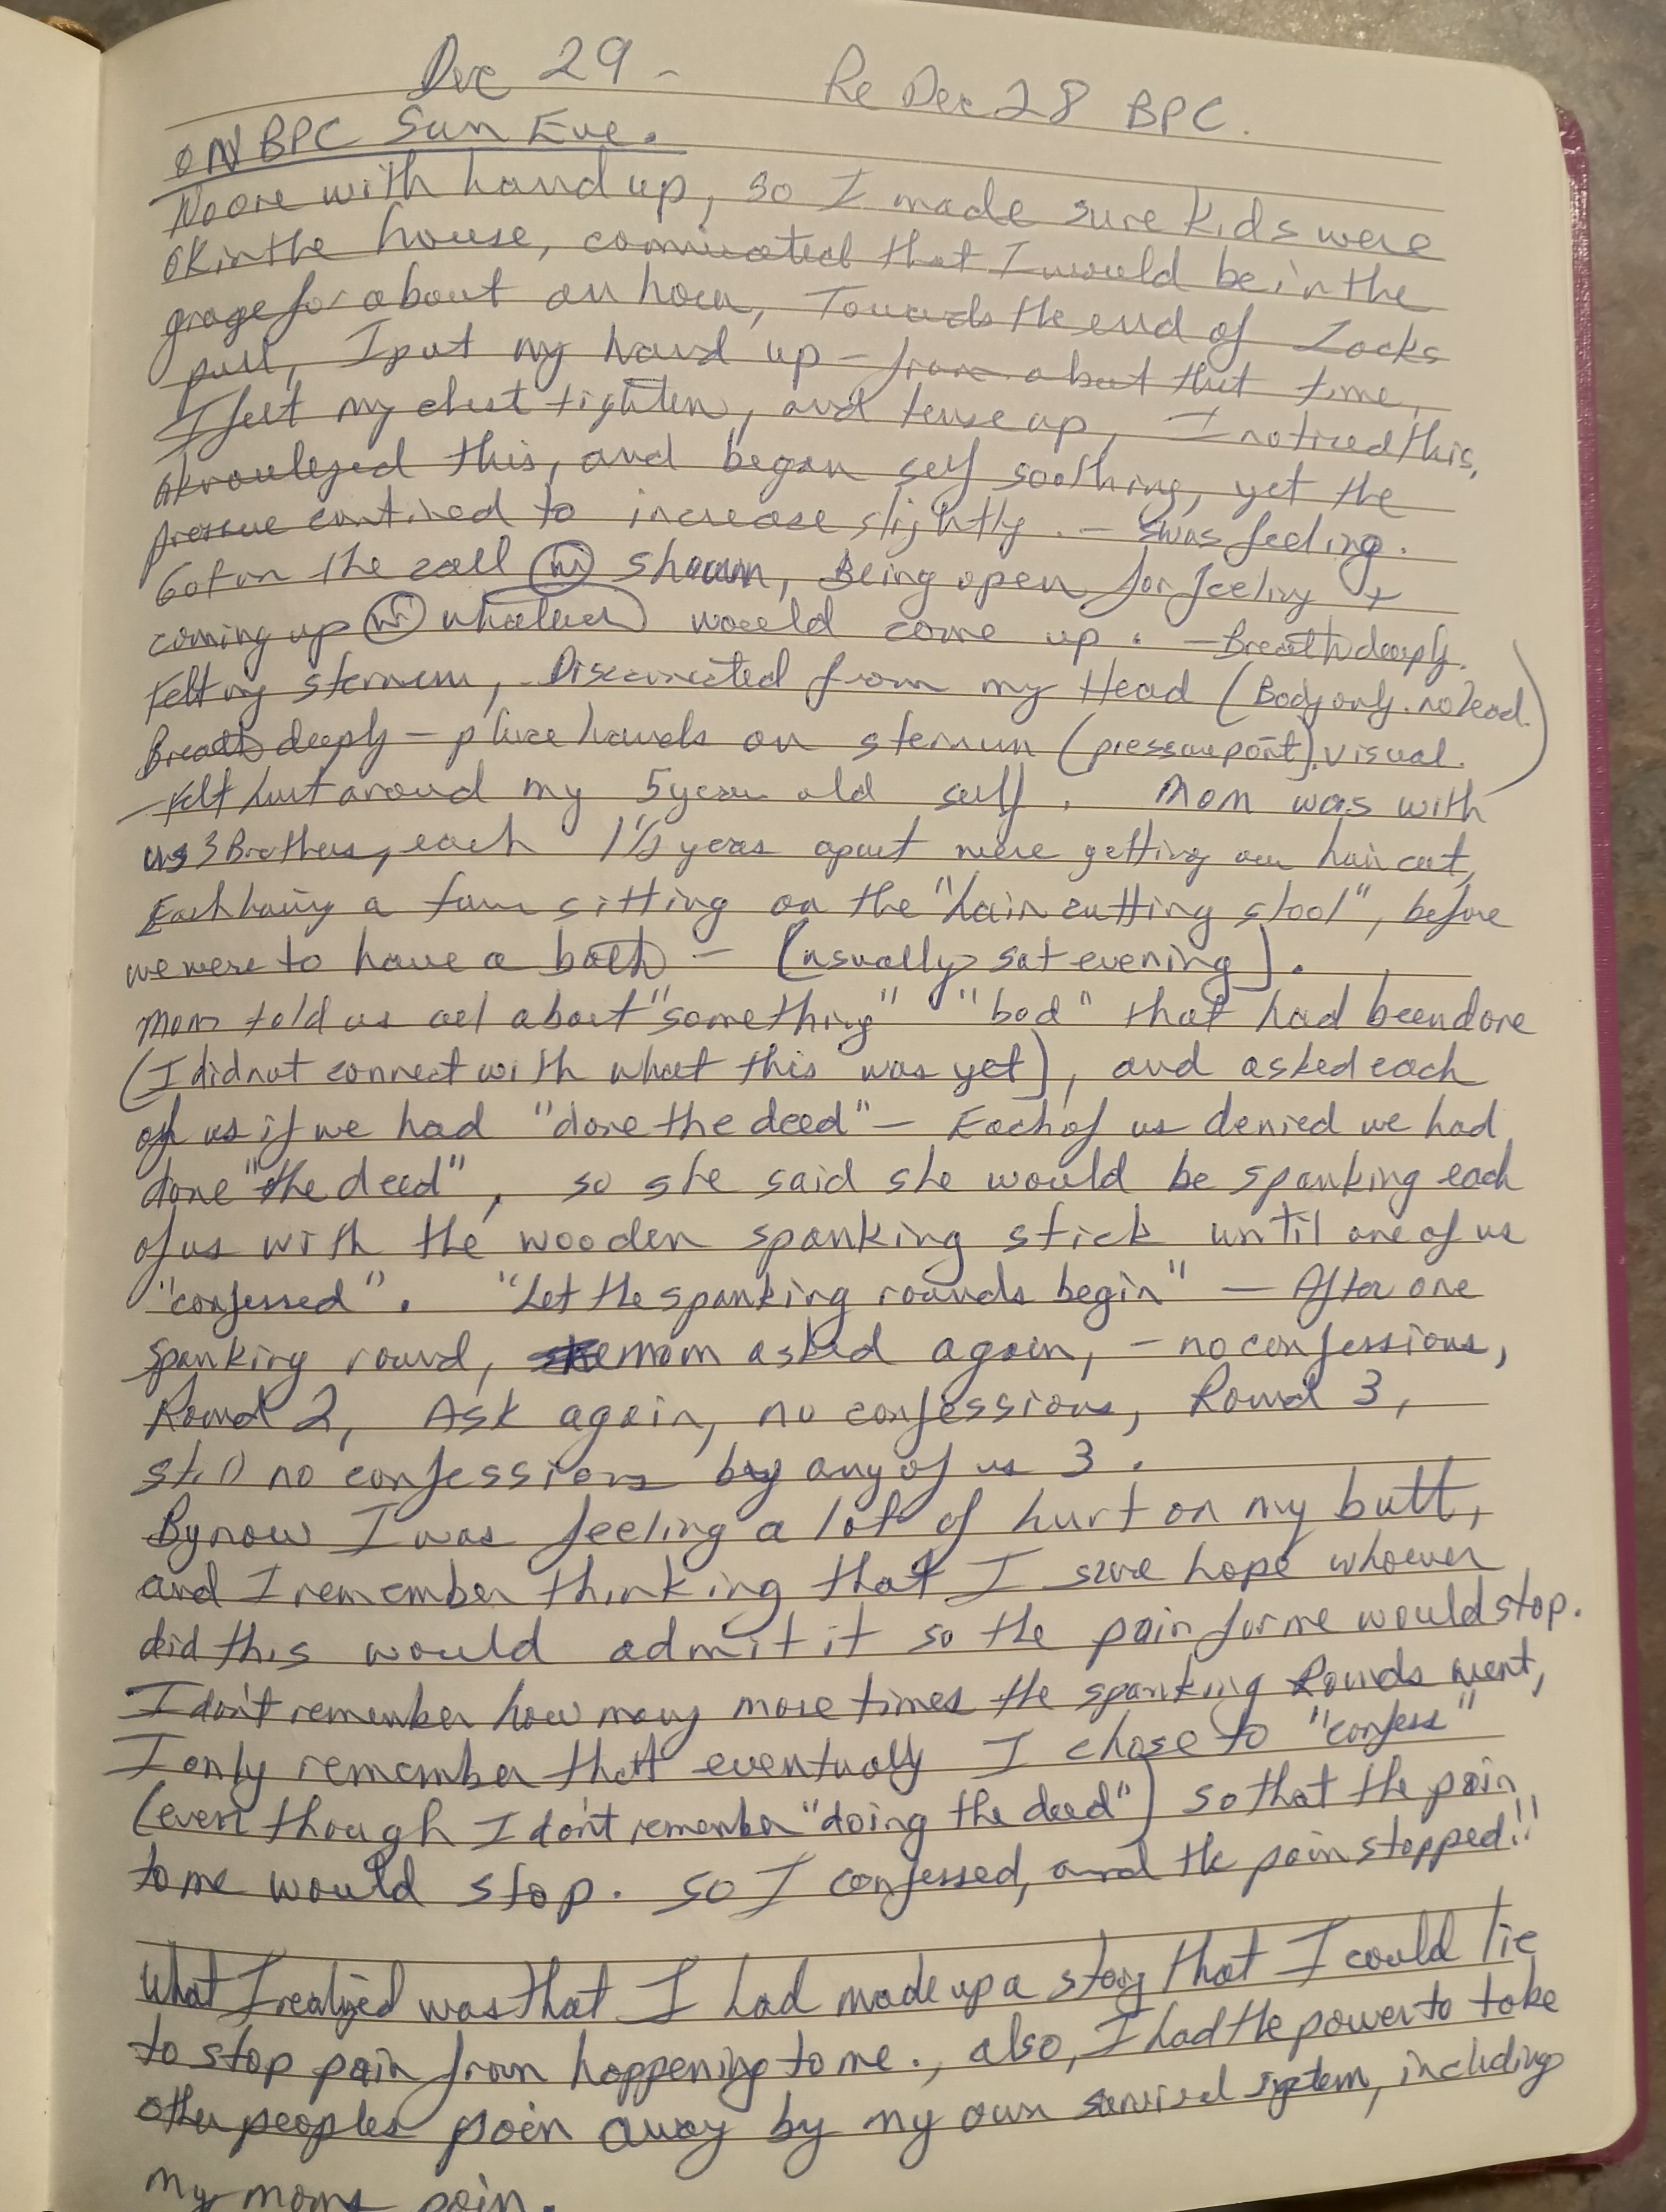 Dec 29 - Re Dec 28 BPC.
ON BPC Sun Eve.
No one with hand up, so I made sure kids were
OK in the house, comunicated that I would be in the
grage for about an hour, Towards the end of Zacks
pull, I put my hand up - from about that time,
I felt my chest tighten, and tense up, I noticed this,
aknowleged this, and began self soothing, yet the
pressue contined to increase slightly. - feeling.
Got on the call wi Shawn, Being open for feeling +
coming up wi whatever would come up. - Breath deeply.
Felt my sternum, Disconnected from my Head (Body only. no head.
Breath deeply - place hands on sternum (pressure point). visual.
- Felt hurt aroud my 5 year old self. Mom was with
us 3 Brothers, each 1½ years apart were getting our hair cut,
Each having a turn sitting on the "hair cutting stool", before
we were to have a bath - (usually sat evening).
Mom told us all about "something" "bad" that had been done
(I did not connect with what this was yet), and asked each
of us if we had "done the deed" - Each of us denied we had
done "the deed", so she said she would be spanking each
of us with the wooden spanking stick until one of us
"confessed". "Let the spanking rounds begin" - After one
spanking round, mom asked again, - no confessions,
Round 2, Ask again, no confessions, Round 3,
still no confessions by any of us 3.
By now I was feeling a lot of hurt on my butt,
and I remember thinking that I sure hope whoever
did this would admit it so the pain for me would stop.
I don't remember how many more times the spanking Rounds went,
I only remember that eventually I chose to "confess"
(even though I don't remember "doing the deed") so that the pain
to me would stop. So I confessed, and the pain stopped!!
What I realized was that I had made up a story that I could lie
to stop pain from happening to me., also, I had the power to take
other peoples pain away by my own survival system, including
my moms pain.